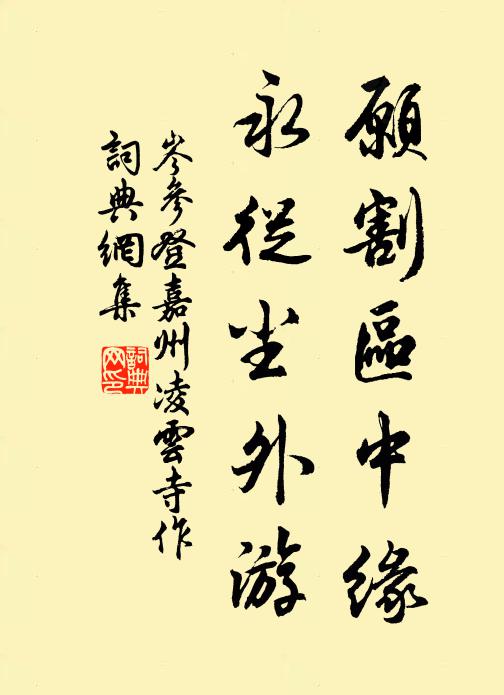 願割區中緣
永從尘外游
岑參登嘉州凌雲寺作
詞典網集
詞典网印